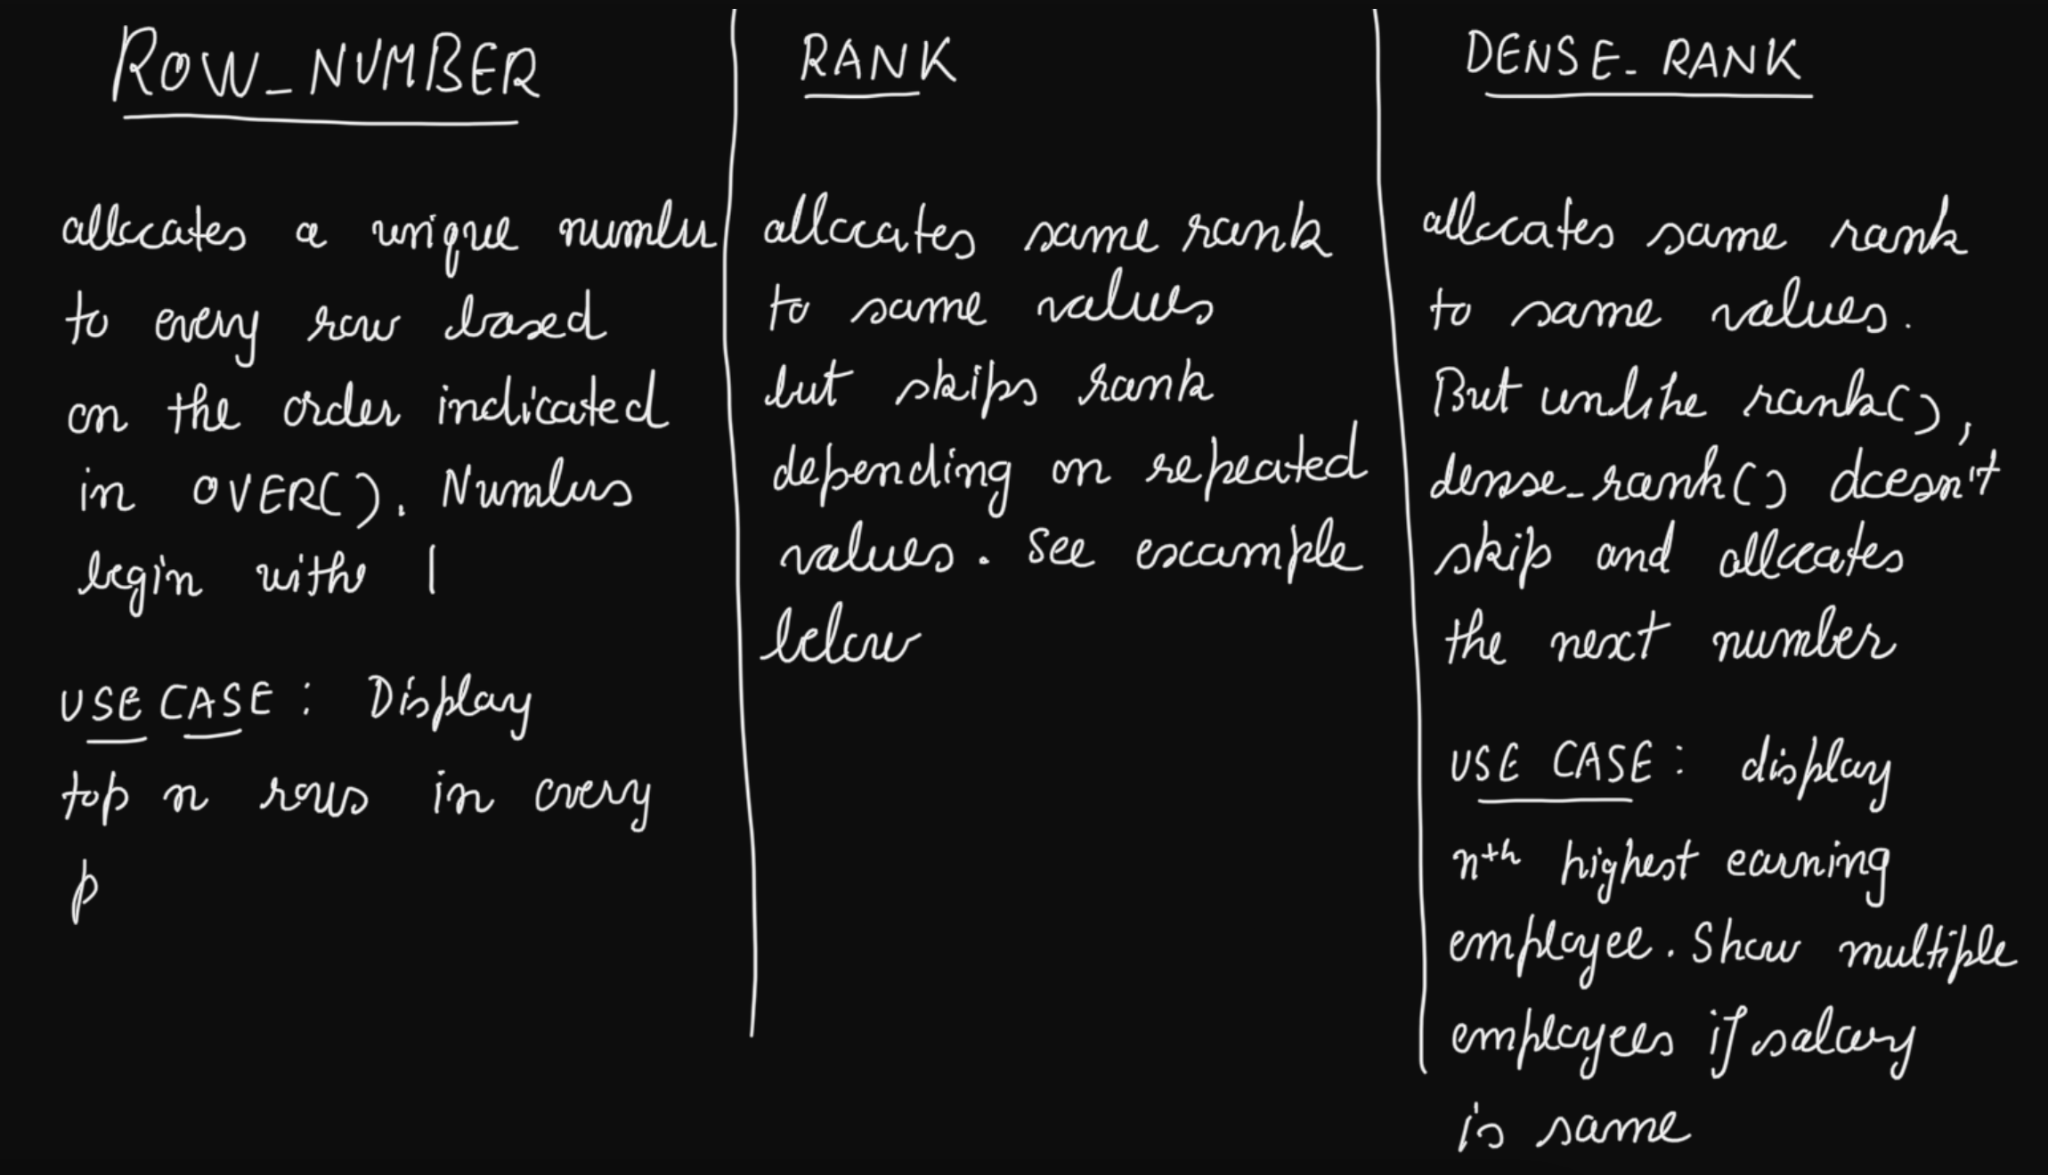 ROW_NUMBER
allocates a unique number
to every row based
on the order indicated
in OVER(). Numbers
begin with 1
USE CASE: Display
top n rows in every
p
RANK
allocates same rank
to same values
but skips rank
depending on repeated
values. See example
below
DENSE_RANK
allocates same rank
to same values.
But unlike rank(),
dense_rank() doesn't
skip and allocates
the next number
USE CASE: display
nth highest earning
employee. Show multiple
employees if salary
is same